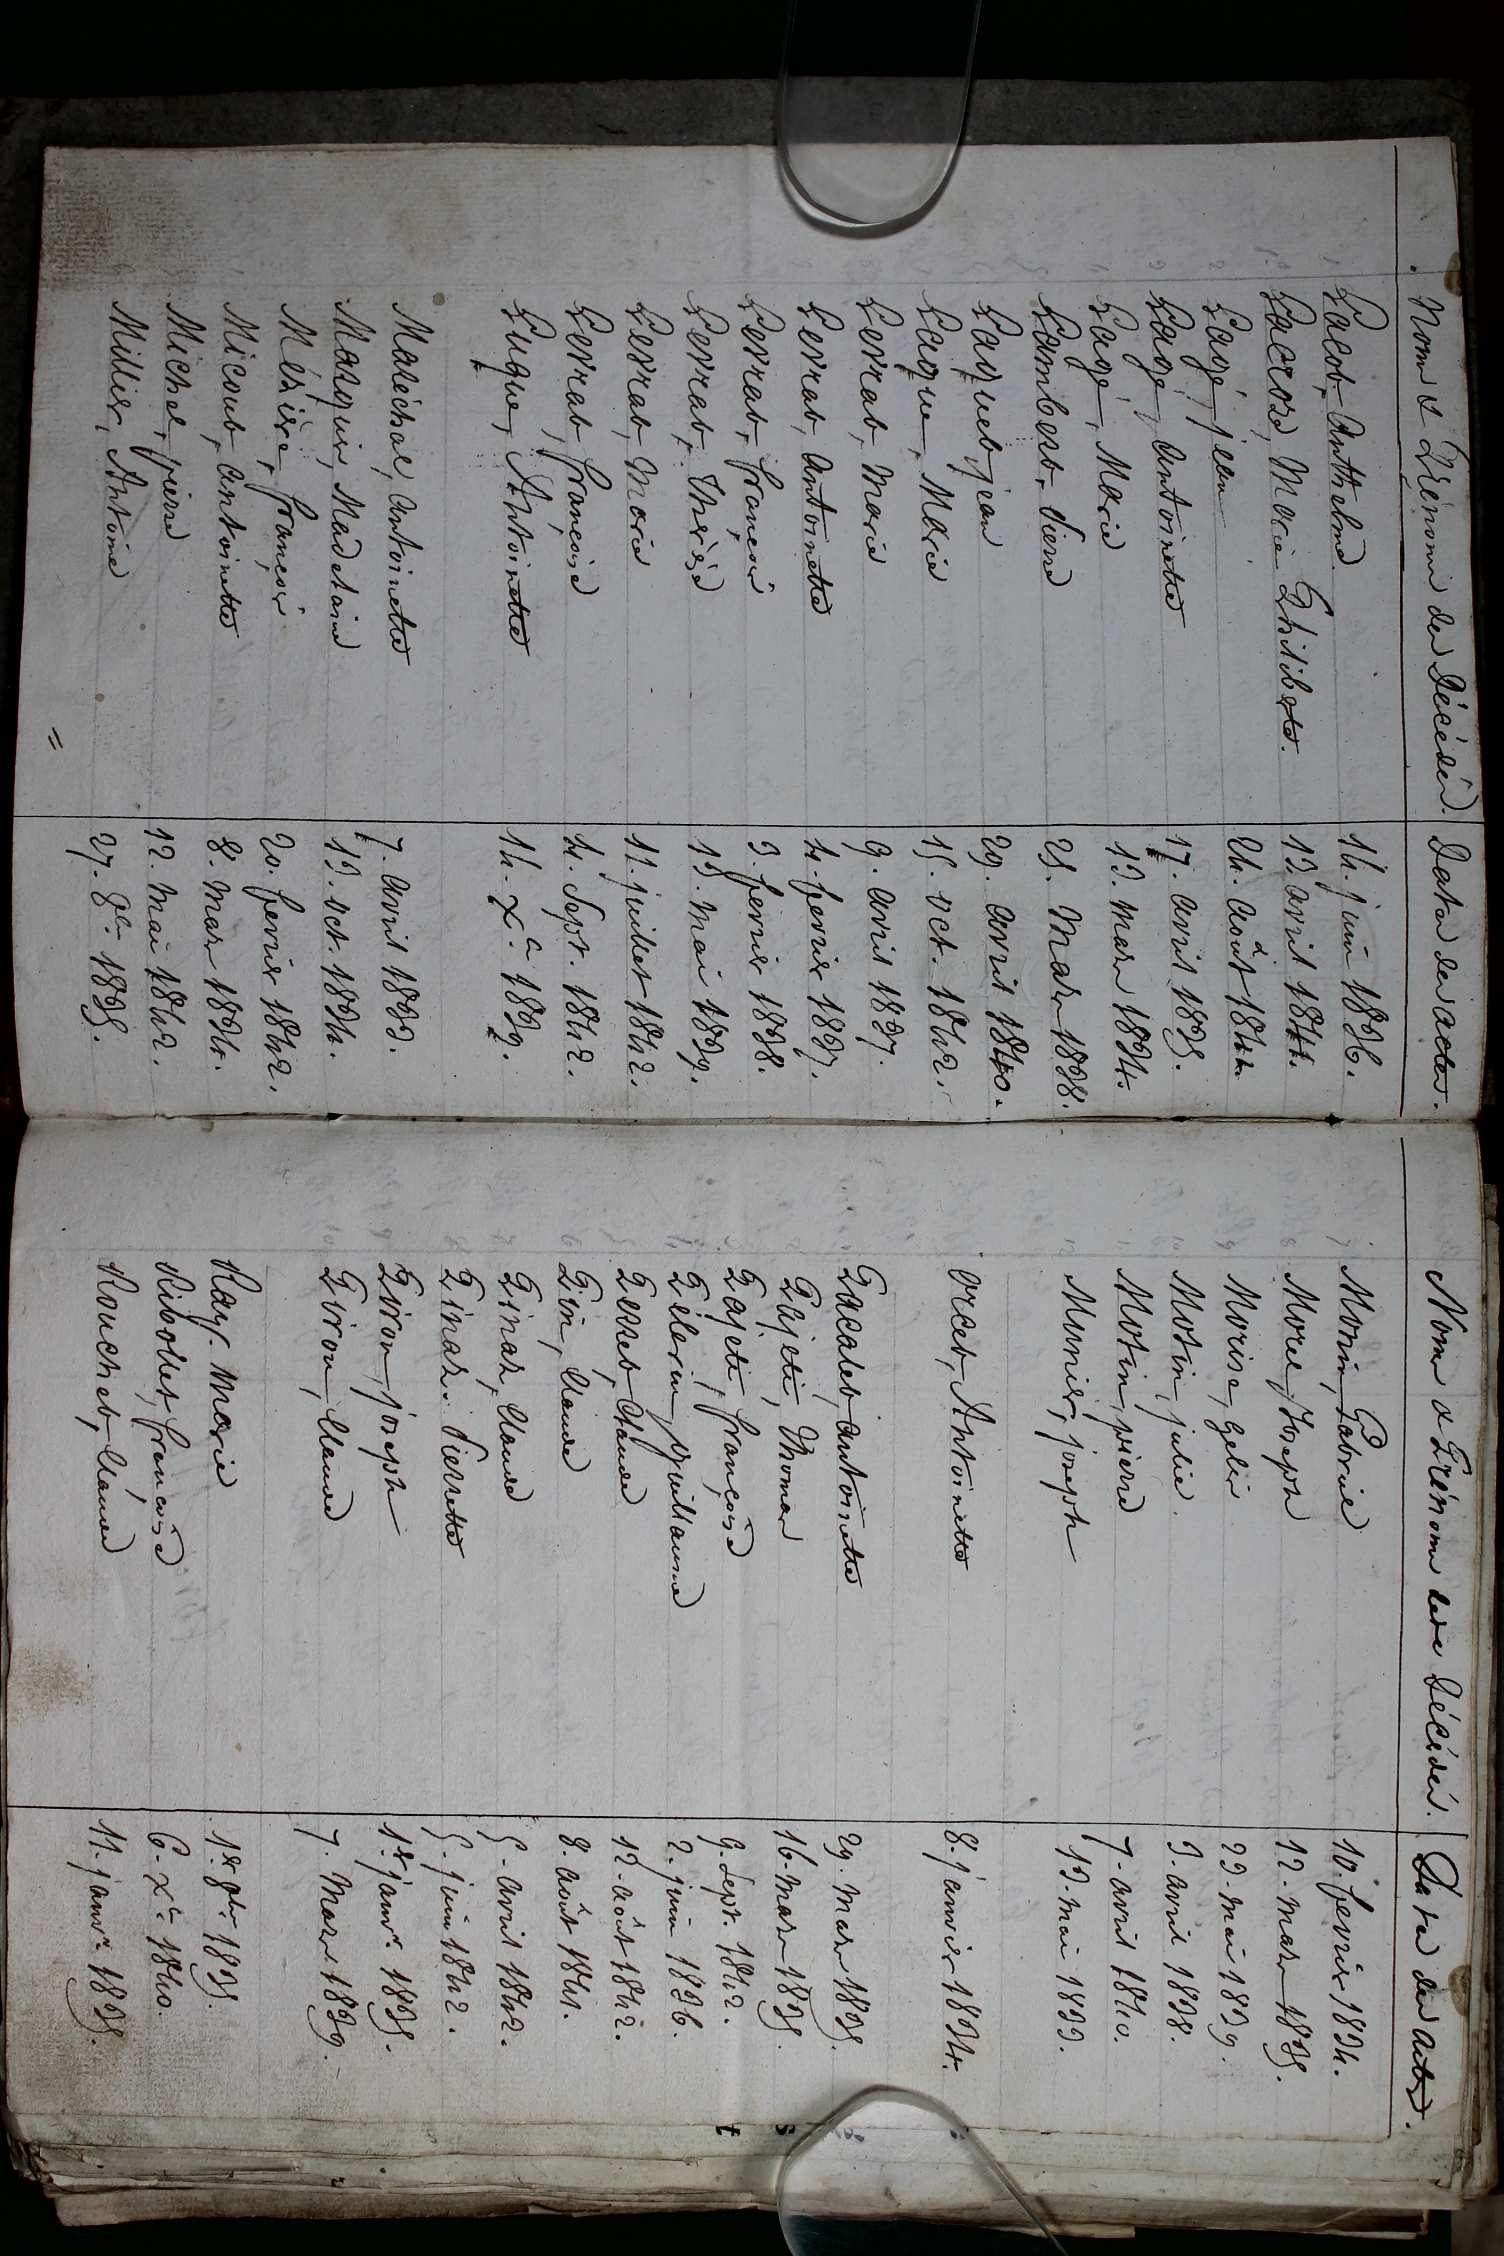 Noms & Prénoms des Décédés. Dates des actes.
Lacob, Anthelme 14. juin 1836.
Lacros, Marie Philiberte. 13. avril 1841.
Lagé, jean 24. août 1841.
Lagé, Antoinette 17. avril 1835.
Lagé, Marie 13. Mars 1834.
Lambert, Pierre 25. Mars 1838.
Laquet, jean 29. avril 1840.
Laque, Marie 15. oct. 1842.
Levrat, Marie 9. avril 1837.
Levrat, Antoinette 4. fevrier 1837.
Levrat, françois 3. fevrier 1838.
Levrat, Thérèse 13. Mai 1839.
Levrat, Marie 11. juillet 1842.
Levrat, françoise 4. Sept. 1842.
Luque, Antoinette 14. Xbre 1839.
Maréchal, Antoinette 7. avril 1833.
Marquis, Madelaine 13. oct. 1834.
françois 20. fevrier 1842.
Micout, Antoinette 8. Mars 1834.
Michel, pierre 12. Mai 1842.
Millier, Antoine 27. 8bre 1835.
=
Noms & Prénoms des Décédés. Dates des actes.
7 Monin, Gabriel 10. fevrier 1834.
8 Morel, Joseph 12. Mars 1835.
9 Morise, 23. Mai 1839.
10 Motin, julie. 3. avril 1838.
11 Motin, pierre 7. avril 1840.
12 Munier, joseph 13. Mai 1833.
Orcet, Antoinette 8. janvier 1834.
Pacalet, Antoinette 29. Mars 1835.
Pajeti, Thomas 16. Mars 1835.
Pajeti, françoise 9. Sept. 1842.
Pelerin, Guillaume 2. juin 1836.
Perret, Claude 12. août 1842.
Pin, Claude 8. août 1841.
Pinar, Claude 5. avril 1842.
Pinar, Pierrette 5. juin 1842.
Piron, joseph 1er janvr. 1835.
Piron, Claude 7. Mars 1839.
Ray, Marie 1er 9bre 1835.
Ribollet, françoise 6. Xbre 1840.
Rouchet, Claude 11. janvr. 1835.